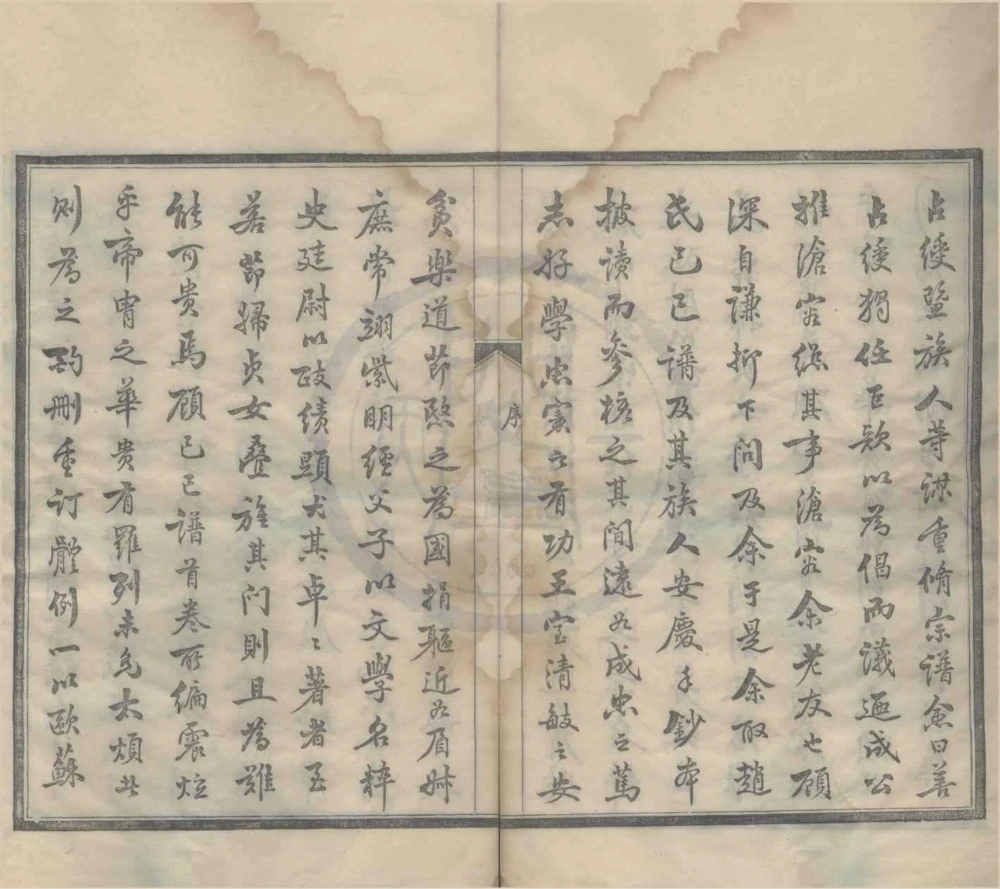 占绶暨族人等謀重脩宗譜僉曰善
占绶獨任巨款以為倡而議遂成公
推滄客總其事滄客余老友也顧
深自謙抑下問及余于是余取趙
氏己巳譜及其族人安慶手鈔本
披讀而參核之其間遠如成忠之篤
志好學忠憲之有功王室清敏之安
序
貧樂道節愍之為國捐軀近如眉
庶常翊紫明經父子以文學名粹
史廷尉以政績顯尤其卓卓著者至
若節婦貞女疊旌其门則且為難
能可貴焉顧己巳譜首卷所編震炫
乎帝胄之華貴有羅列未免太煩此
則為之酌刪重订體例一以歐蘇